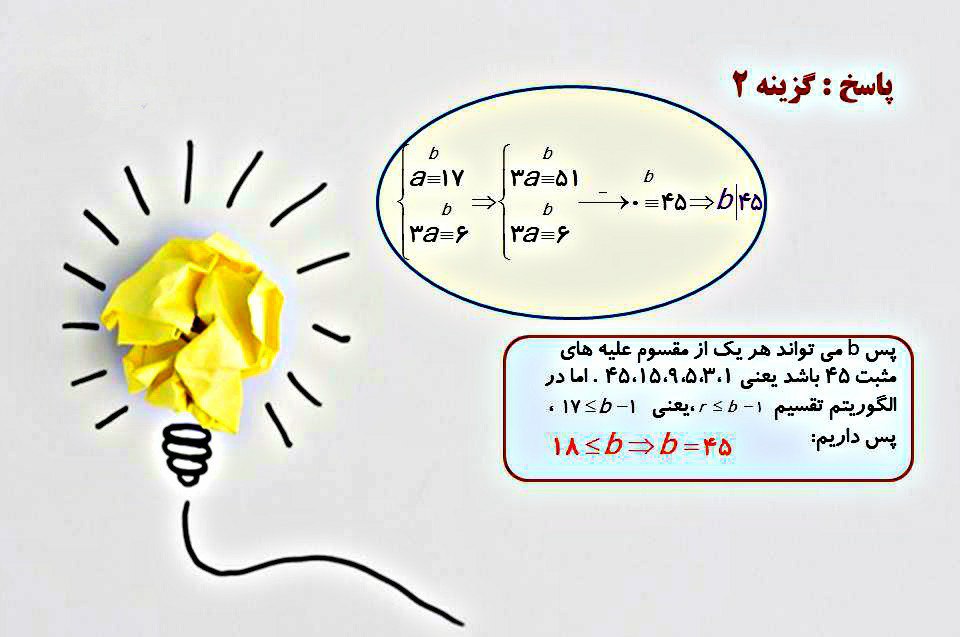 پاسخ : گزینه ۲
{a ≡ ۱۷ (b), ۳a ≡ ۶ (b)} ⇒ {۳a ≡ ۵۱ (b), ۳a ≡ ۶ (b)} —⟶ ۰ ≡ ۴۵ (b) ⇒ b|۴۵
پس b می تواند هر یک از مقسوم علیه های
مثبت ۴۵ باشد یعنی ۱،۳،۵،۹،۱۵،۴۵ . اما در
الگوریتم تقسیم r ≤ b −۱ ،یعنی ۱۷ ≤ b −۱ ،
پس داریم:
۱۸ ≤ b ⇒ b = ۴۵